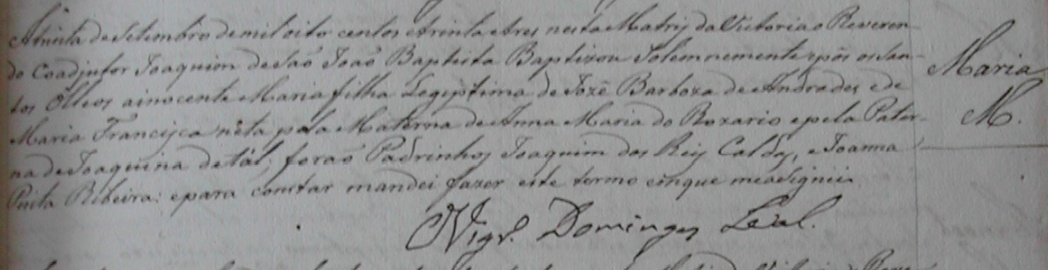 Atrinta de Setembro de mil oito centos etrinta etres nesta Matriz da Victoria o Reveren-
do Coadjutor Joaquim de São João Baptista Baptizou Solemnemente epôs os San-
tos Olleos ainocente Maria filha Legiptima de Jozê Barboza de Andrades ede
Maria Francisca nêta pela Materna de Anna Maria do Rozario epela Pater-
na de Joaquina de tál; forão Padrinhos Joaquim dos Reys Caldas, e Joanna
Ribeira: epara constar mandei fazer este termo emque measignei.
Vigr.º Domingos Leal.
Maria
M.